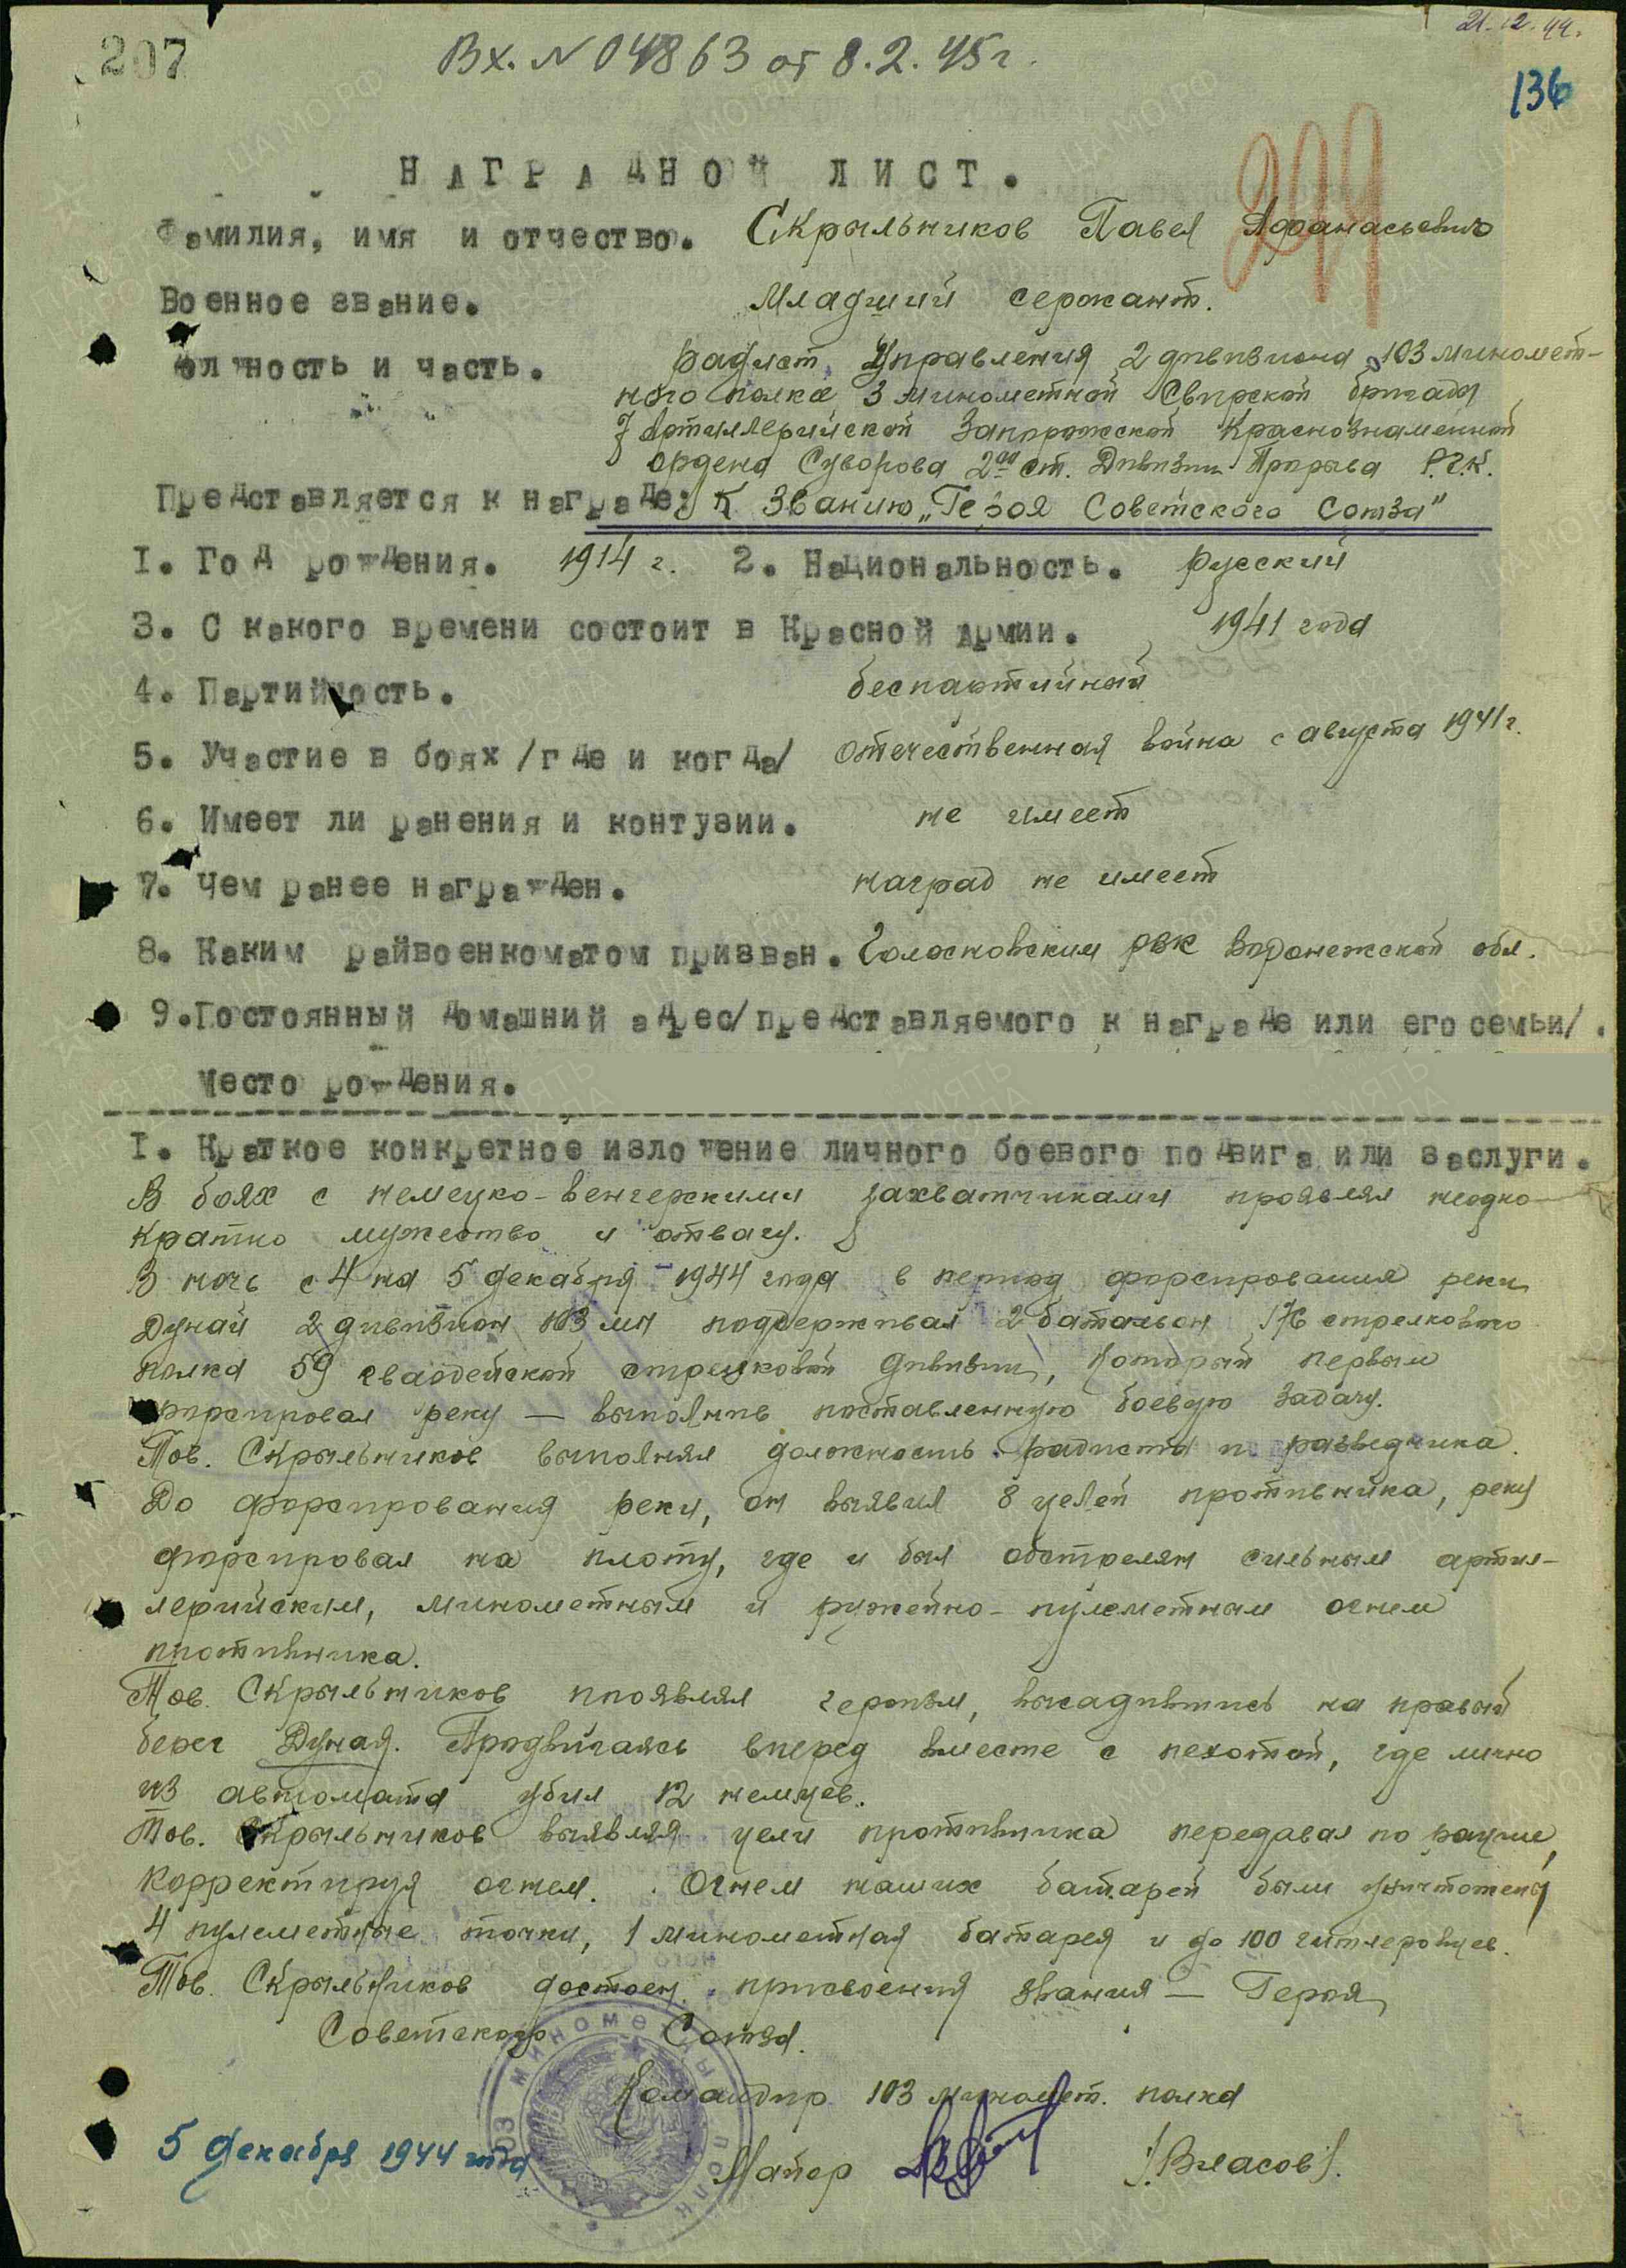 21.12.44.
207
Вх. N 04863 от 8.2.45г.
136
НАГРАДНОЙ ЛИСТ.
Фамилия, имя и отчество. Скрыльников Павел Афанасьевич
Военное звание. Младший сержант.
олжность и часть. радист Управления 2 дивизиона 103 миномет-
ного полка 3 минометной Свирской бригады
7 Артиллерийской Запорожской Краснознаменной
ордена Суворова 2ой ст. Дивизии Прорыва Р.Г.К.
Представляется к награде: К Званию „Героя Советского Союза"
I. Год рождения. 1914 г. 2. Национальность. русский
3. С какого времени состоит в Красной Армии. 1941 года
4. Партийность. беспартийный
5. Участие в боях /где и когда/ отечественная война с августа 1941г.
6. Имеет ли ранения и контузии. не имеет
7. Чем ранее награжден. наград не имеет
8. Каким райвоенкоматом призван. РВК Воронежской обл.
9. Постоянный домашний адрес/представляемого к награде или его семьи/.
Место рождения.
I. Краткое конкретное изложение личного боевого подвига или заслуги.
В боях с немецко-венгерскими захватчиками проявлял неодно-
кратно мужество и отвагу.
В ночь с 4 на 5 декабря 1944 года в период форсирования реки
Дунай 2 дивизион 103 мп поддерживал 2 батальон стрелкового
полка 59 гвардейской стрелковой дивизии, который первым
форсировал реку — выполнив поставленную боевую задачу.
Тов. Скрыльников выполнял должность радиста и разведчика.
До форсирования реки, он выявил 8 целей противника, реку
форсировал на плоту, где и был обстрелян сильным артил-
лерийским, минометным и ружейно-пулеметным огнем
противника.
Тов. Скрыльников проявлял героизм, высадившись на правый
берег Дуная. Продвигаясь вперед вместе с пехотой, где лично
из автомата убил 12 немцев.
Тов. Скрыльников выявляя цели противника передавал по рации,
корректируя огнем. Огнем наших батарей были уничтожены
4 пулеметные точки, 1 минометная батарея и до 100 гитлеровцев.
Тов. Скрыльников достоен присвоения звания — Героя
Советского Союза.
Командир 103 миномет. полка
5 декабря 1944 года Майор /Власов/.